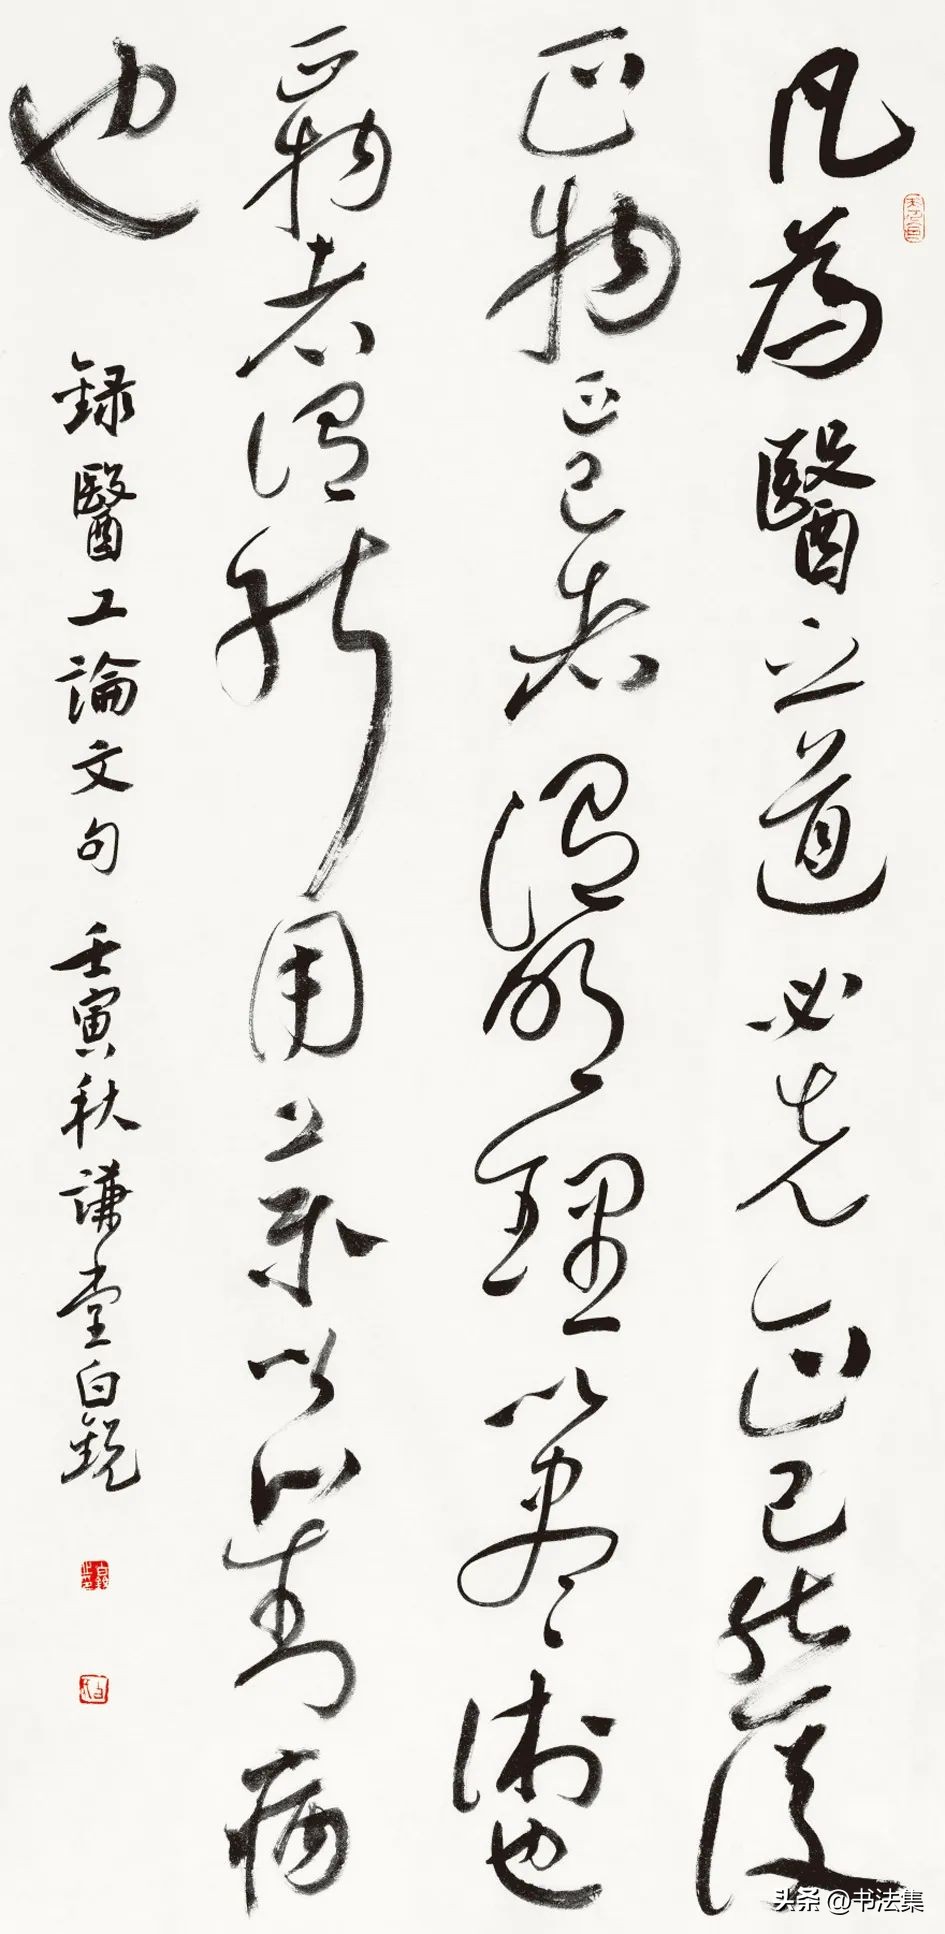 凡為醫之道必先正己然後
正物正己者謂明理以盡術也
正物者謂能用藥以對病
也
録醫工論文句 壬寅秋謙堂白鋭
头条 @书法集